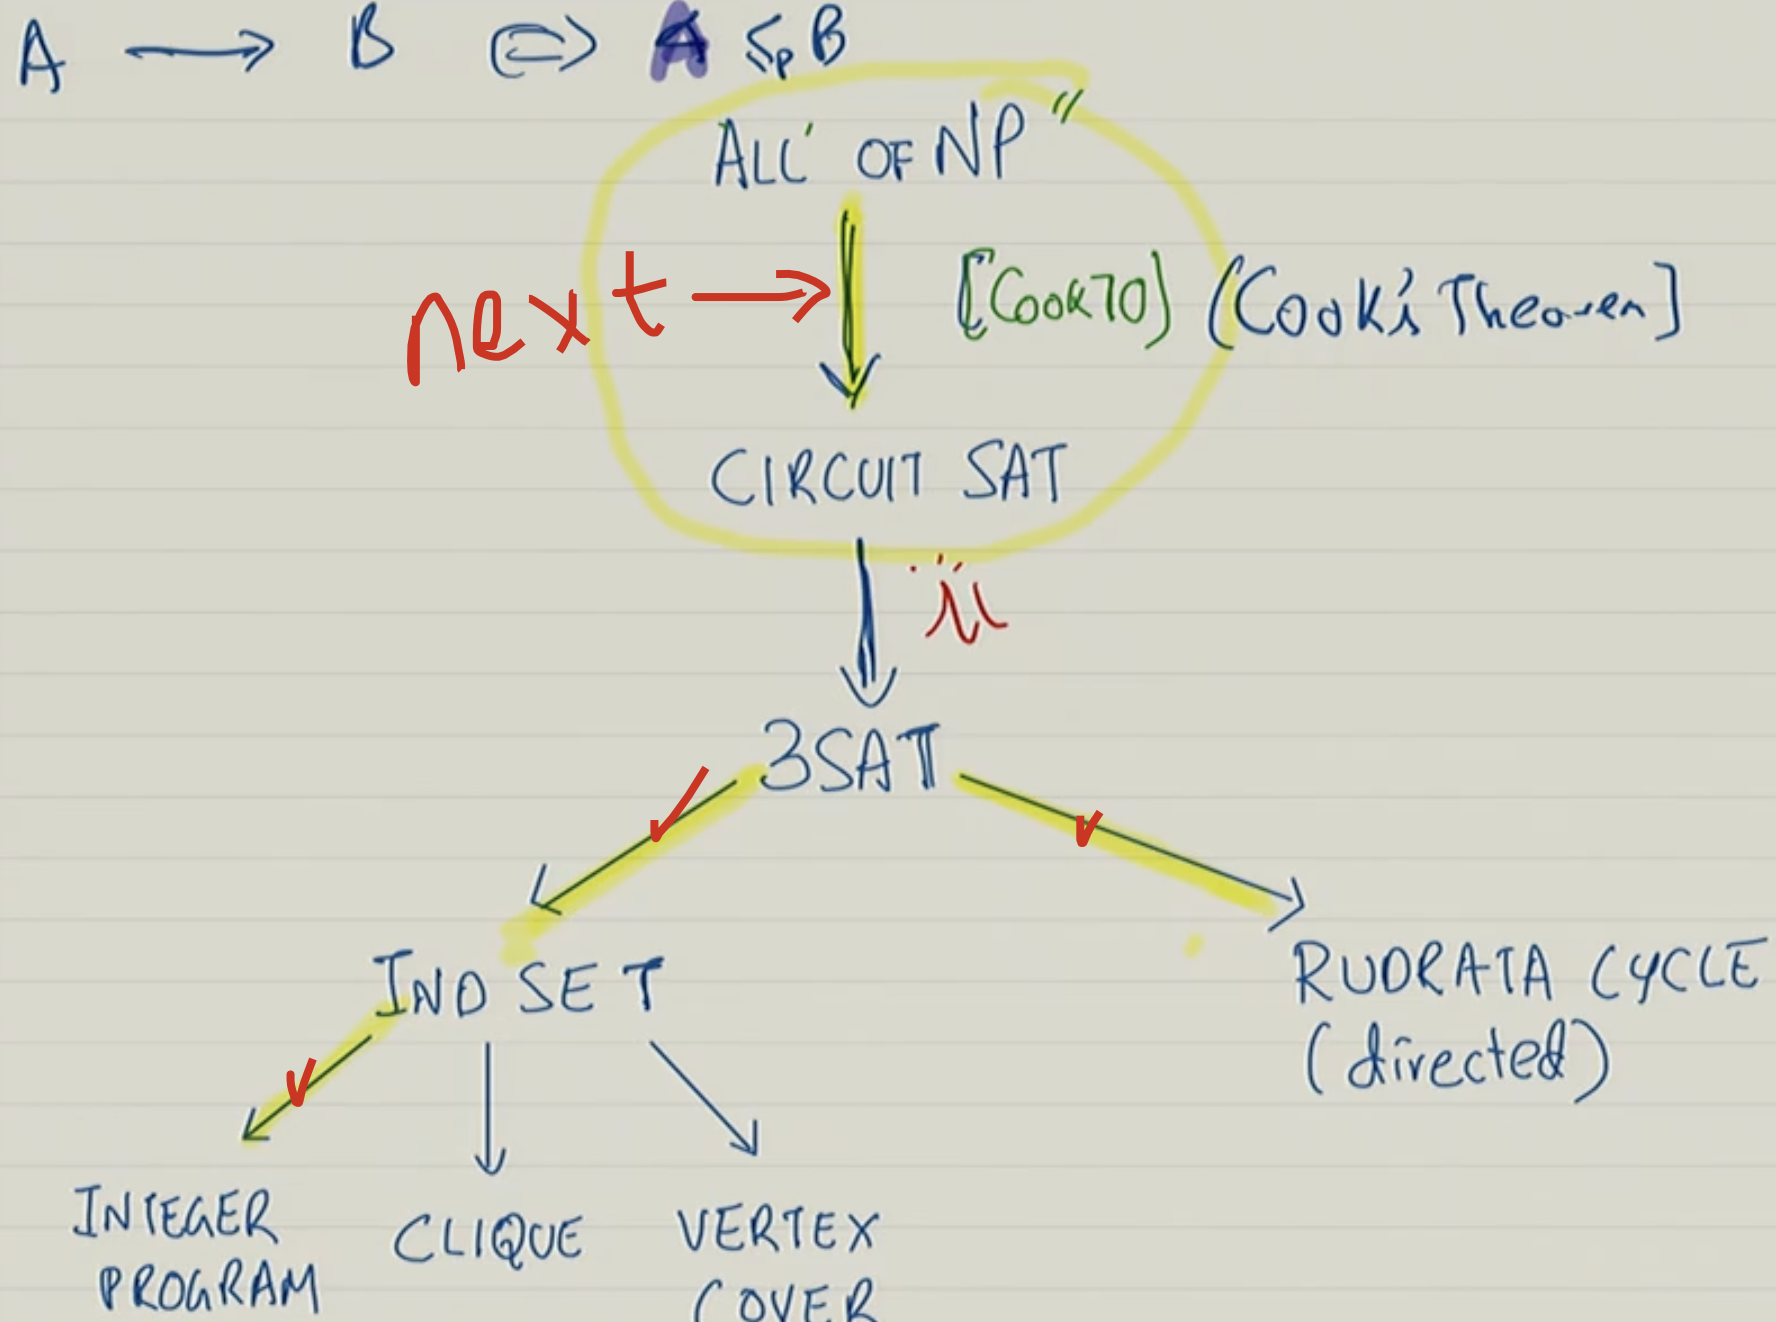 A → B ⇔ A ≤p B
"ALL OF NP"
next → [Cook70] (Cook's Theorem]
CIRCUIT SAT
3SAT
IND SET
RUDRATA CYCLE
(directed)
INTEGER
PROGRAM
CLIQUE
VERTEX
COVER